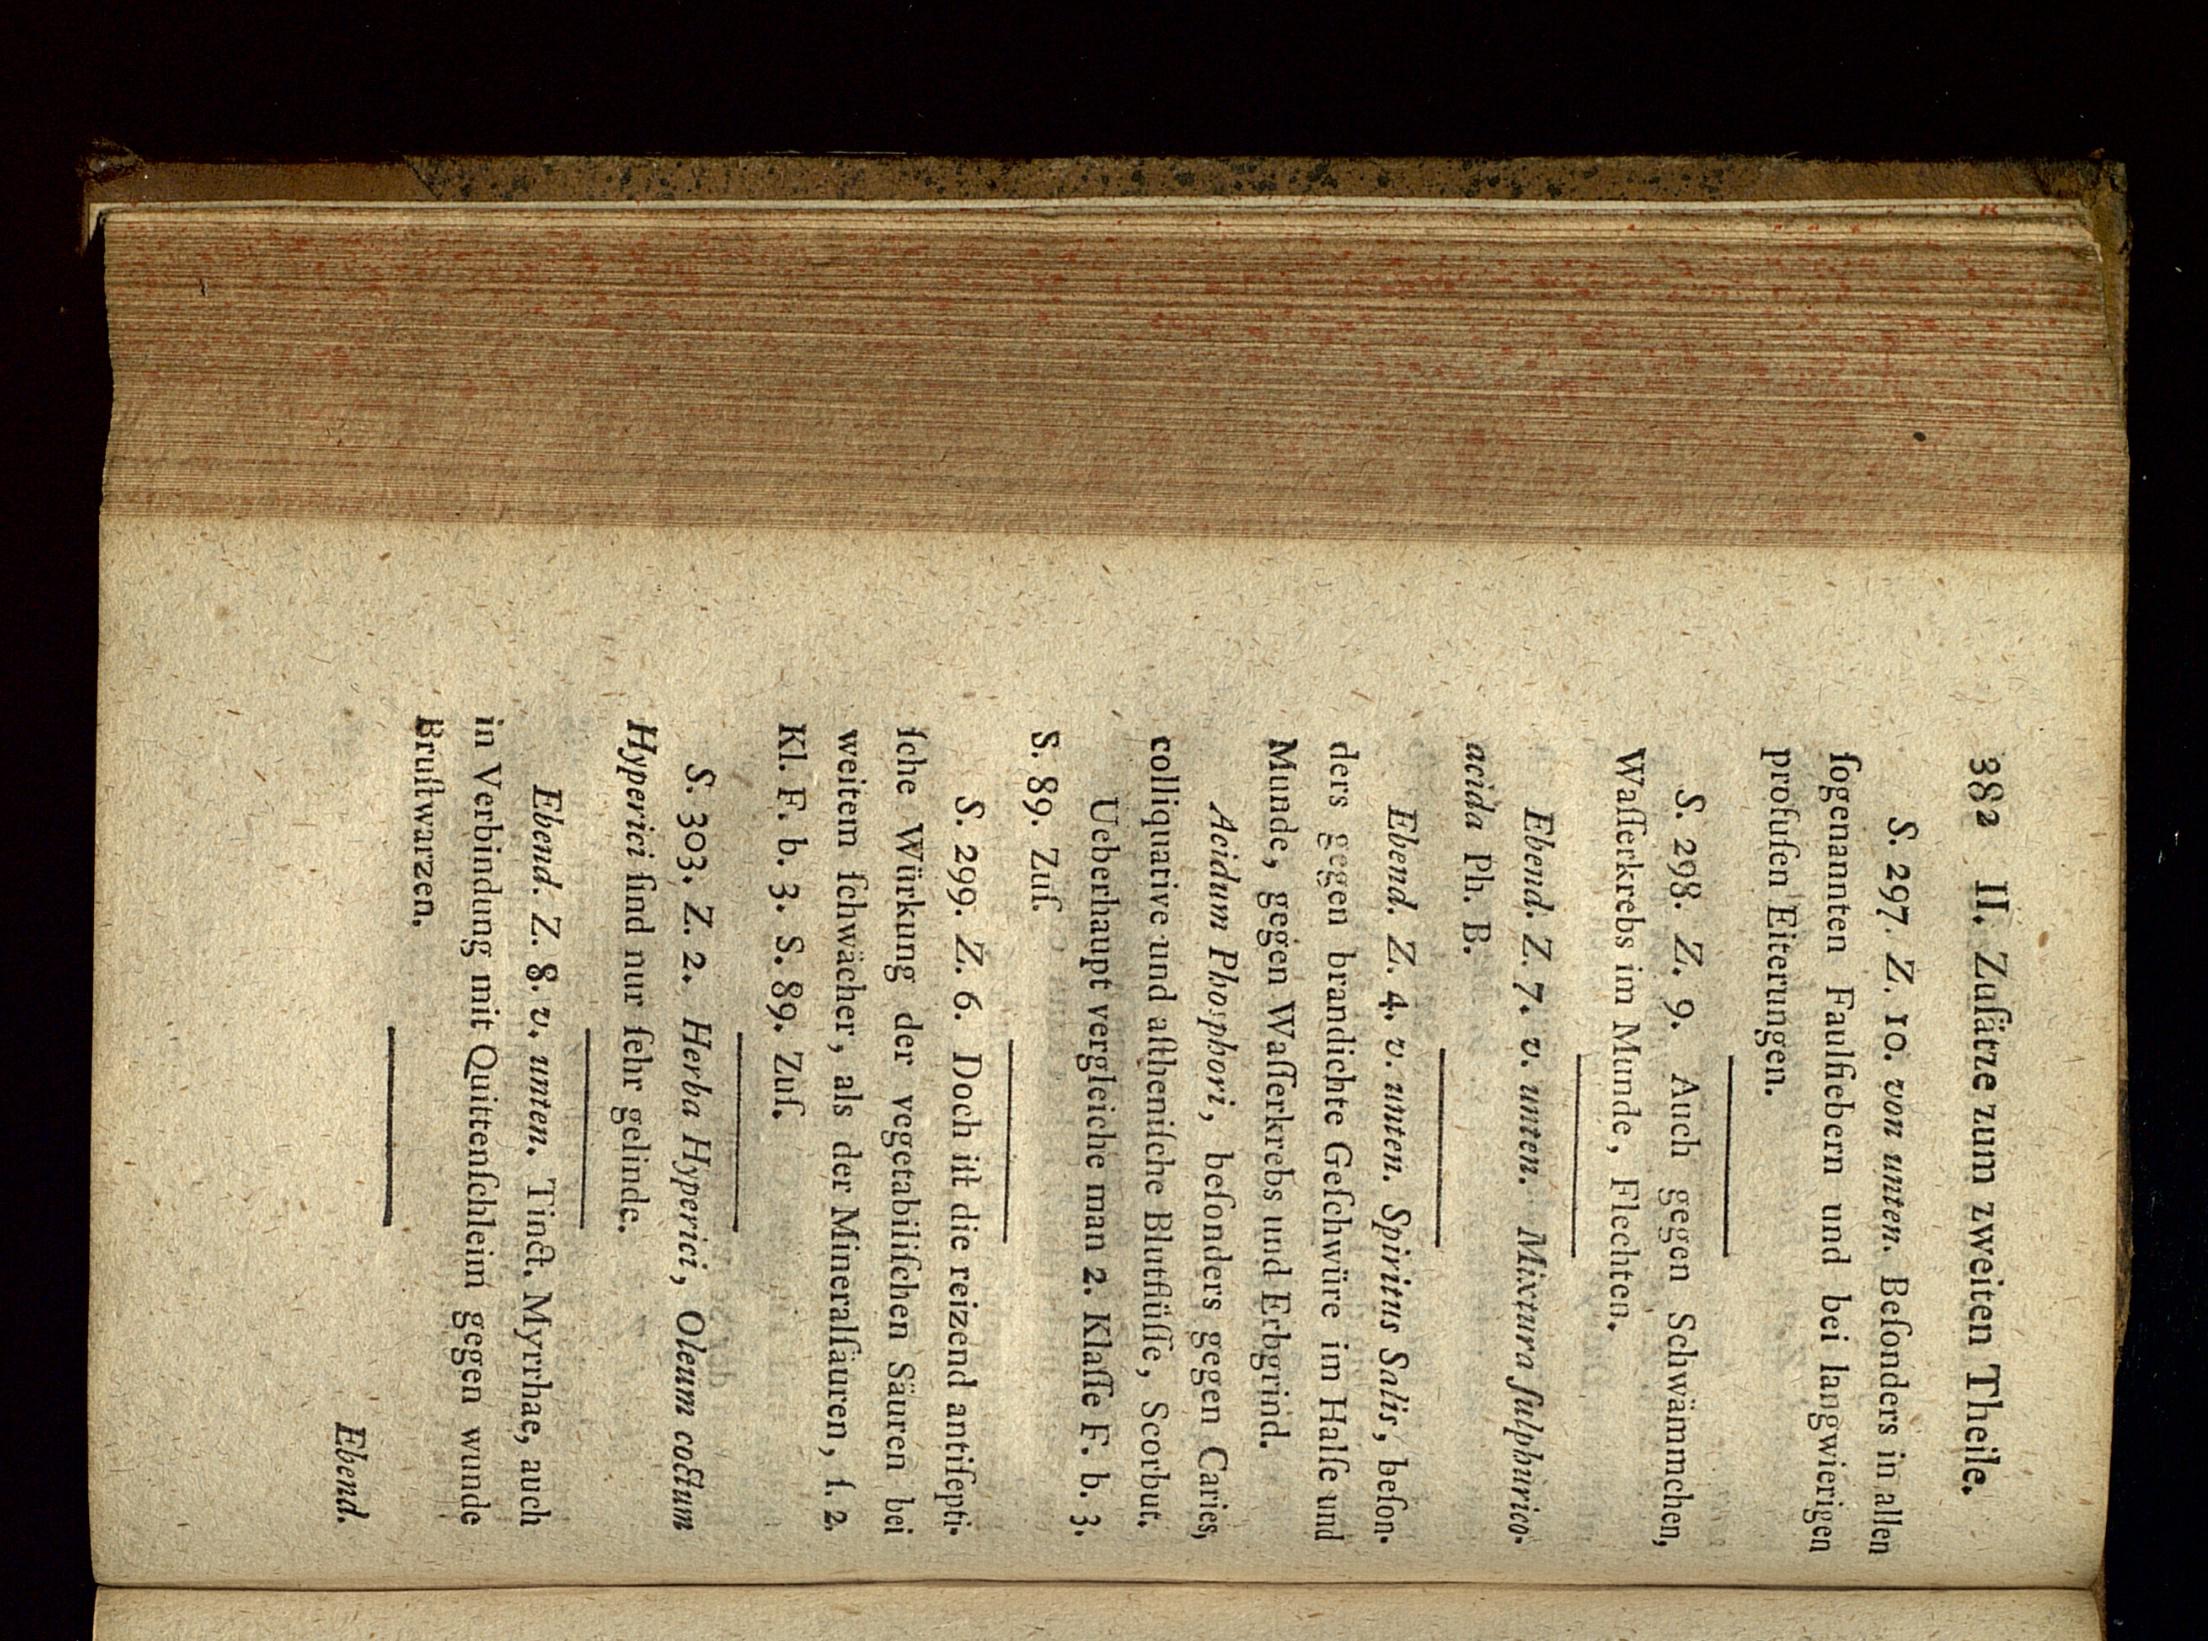 382 II. Zuſätze zum zweiten Theile.
S. 297. Z. 10. von unten. Beſonders in allen
ſogenannten Faulfiebern und bei langwierigen
profuſen Eiterungen.
S. 298. Z. 9. Auch gegen Schwämmchen,
Waſſerkrebs im Munde, Flechten.
Ebend. Z. 7. v. unten. Mixtura ſulphurico-
acida Ph. B.
Ebend. Z. 4. v. unten. Spiritus Salis, beſon-
ders gegen brandichte Geſchwüre im Halſe und
Munde, gegen Waſſerkrebs und Erbgrind.
Acidum Phosphori, beſonders gegen Caries,
colliquative und aſtheniſche Blutflüſſe, Scorbut.
Ueberhaupt vergleiche man 2. Klaſſe F. b. 3.
S. 89. Zuſ.
S. 299. Z. 6. Doch iſt die reizend antiſepti-
ſche Würkung der vegetabiliſchen Säuren bei
weitem ſchwächer, als der Mineralſäuren, ſ. 2.
Kl. F. b. 3. S. 89. Zuſ.
S. 303. Z. 2. Herba Hyperici, Oleum coctum
Hyperici ſind nur ſehr gelinde.
Ebend. Z. 8. v. unten. Tinct. Myrrhae, auch
in Verbindung mit Quittenſchleim gegen wunde
Bruſtwarzen.
Ebend.